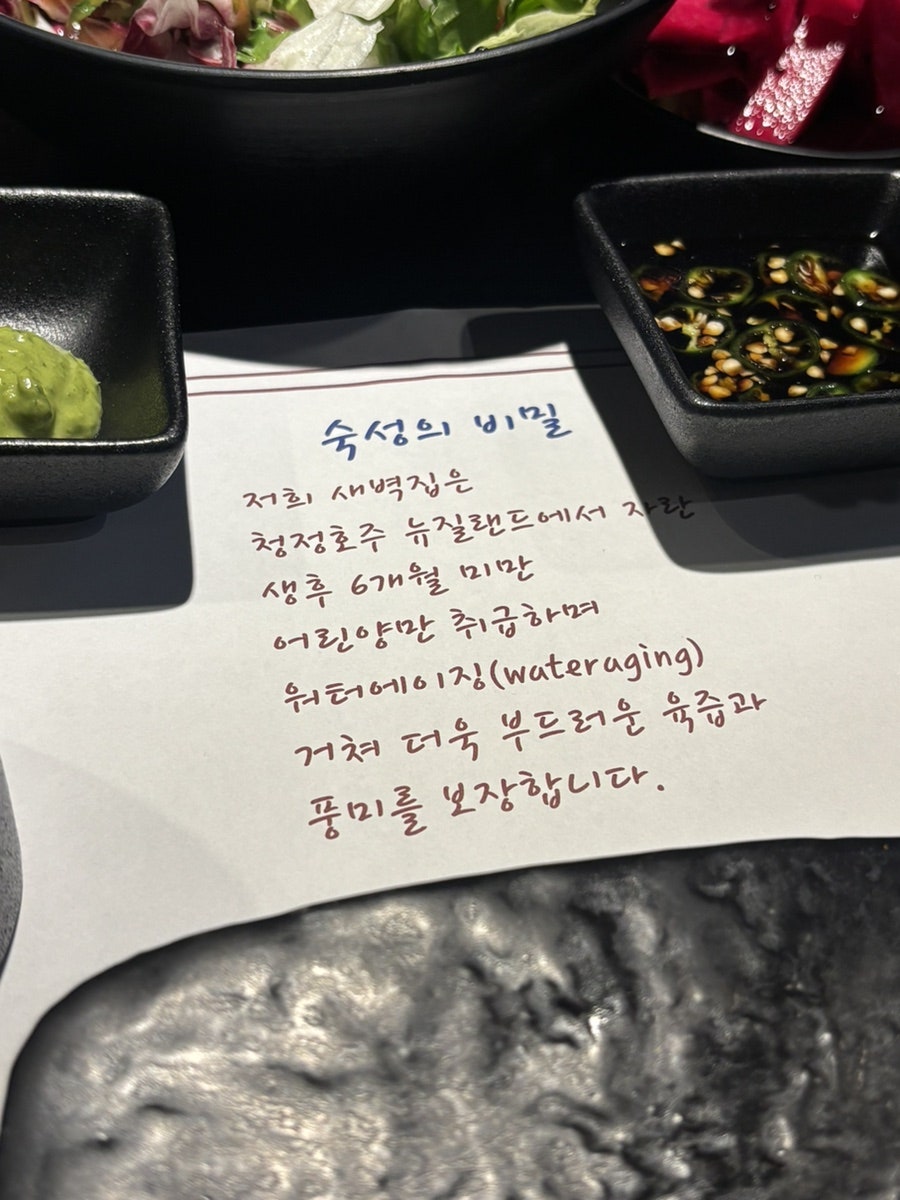 숙성의 비밀
저희 새벽집은
청정호주 뉴질랜드에서 자란
생후 6개월 미만
어린양만 취급하며
워터에이징(wateraging)
거쳐 더욱 부드러운 육즙과
풍미를 보장합니다.